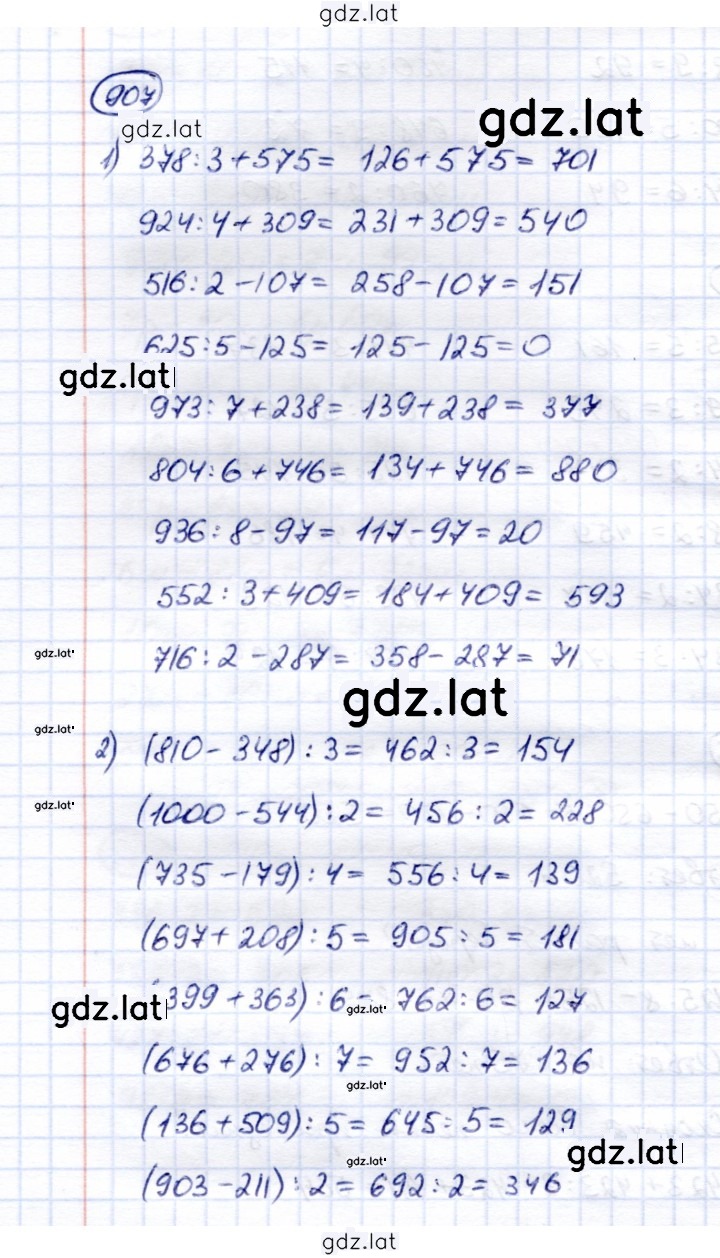 gdz.lat
907
gdz.lat
gdz.lat
1) 378:3+575= 126+575= 701
924:4+309= 231+309=540
516:2-107= 258-107=151
625:5-125= 125-125=0
gdz.lat
973:7+238= 139+238= 377
804:6+746= 134+746= 880
936:8-97= 117-97=20
552:3+409= 184+409= 593
gdz.lat
716:2-287= 358-287= 71
gdz.lat
gdz.lat
2) (810-348):3= 462:3= 154
gdz.lat
(1000-544):2= 456:2= 228
(735-179):4= 556:4= 139
(697+208):5= 905:5= 181
gdz.lat
399+363):6= 762:6= 127
gdz.lat
(676+276):7= 952:7= 136
gdz.lat
(136+509):5= 645:5= 129
gdz.lat
gdz.lat
(903-211):2= 692:2= 346
gdz.lat